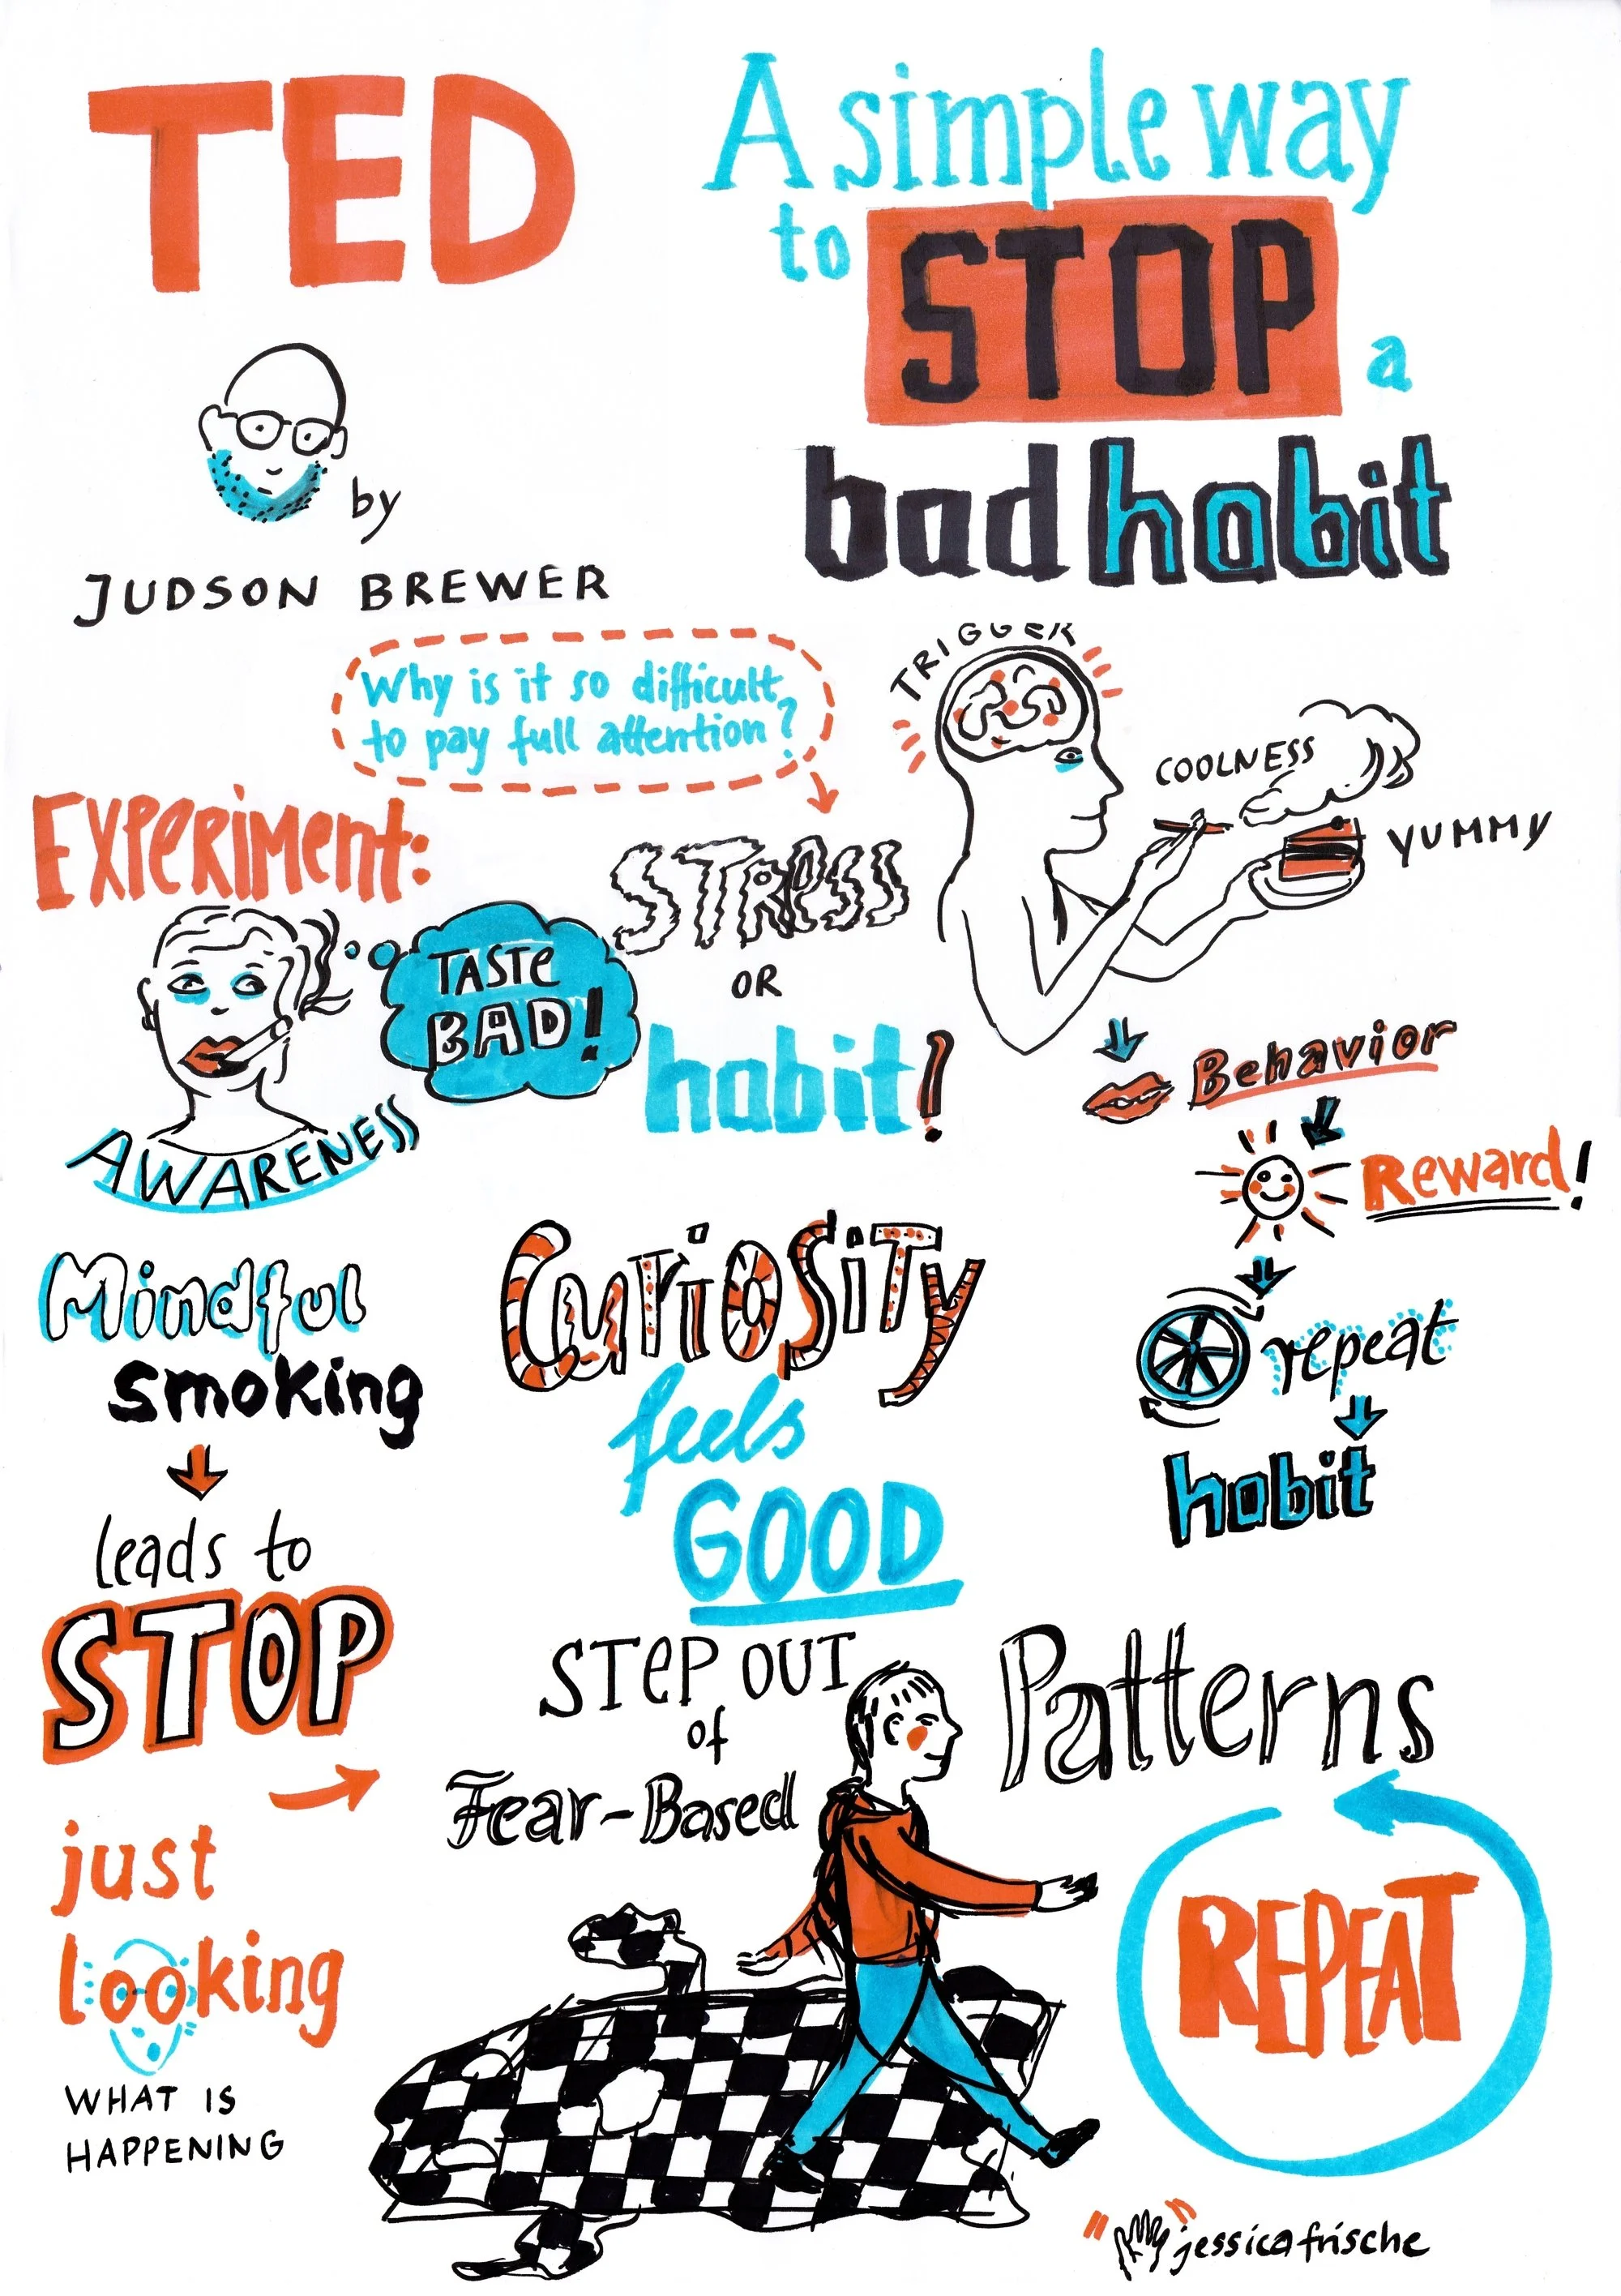 TED
A simple way
to STOP a
bad habit
by
JUDSON BREWER
Why is it so difficult
to pay full attention?
STRESS
OR
habit!
TRIGGER
COOLNESS
YUMMY
Behavior
Reward!
repeat
habit
Experiment:
TASTE
BAD!
AWARENESS
Mindful
smoking
leads to
STOP
just
looking
WHAT IS
HAPPENING
Curiosity
feels
GOOD
STEP OUT
of
Fear-Based
Patterns
REPEAT
jessicafrische